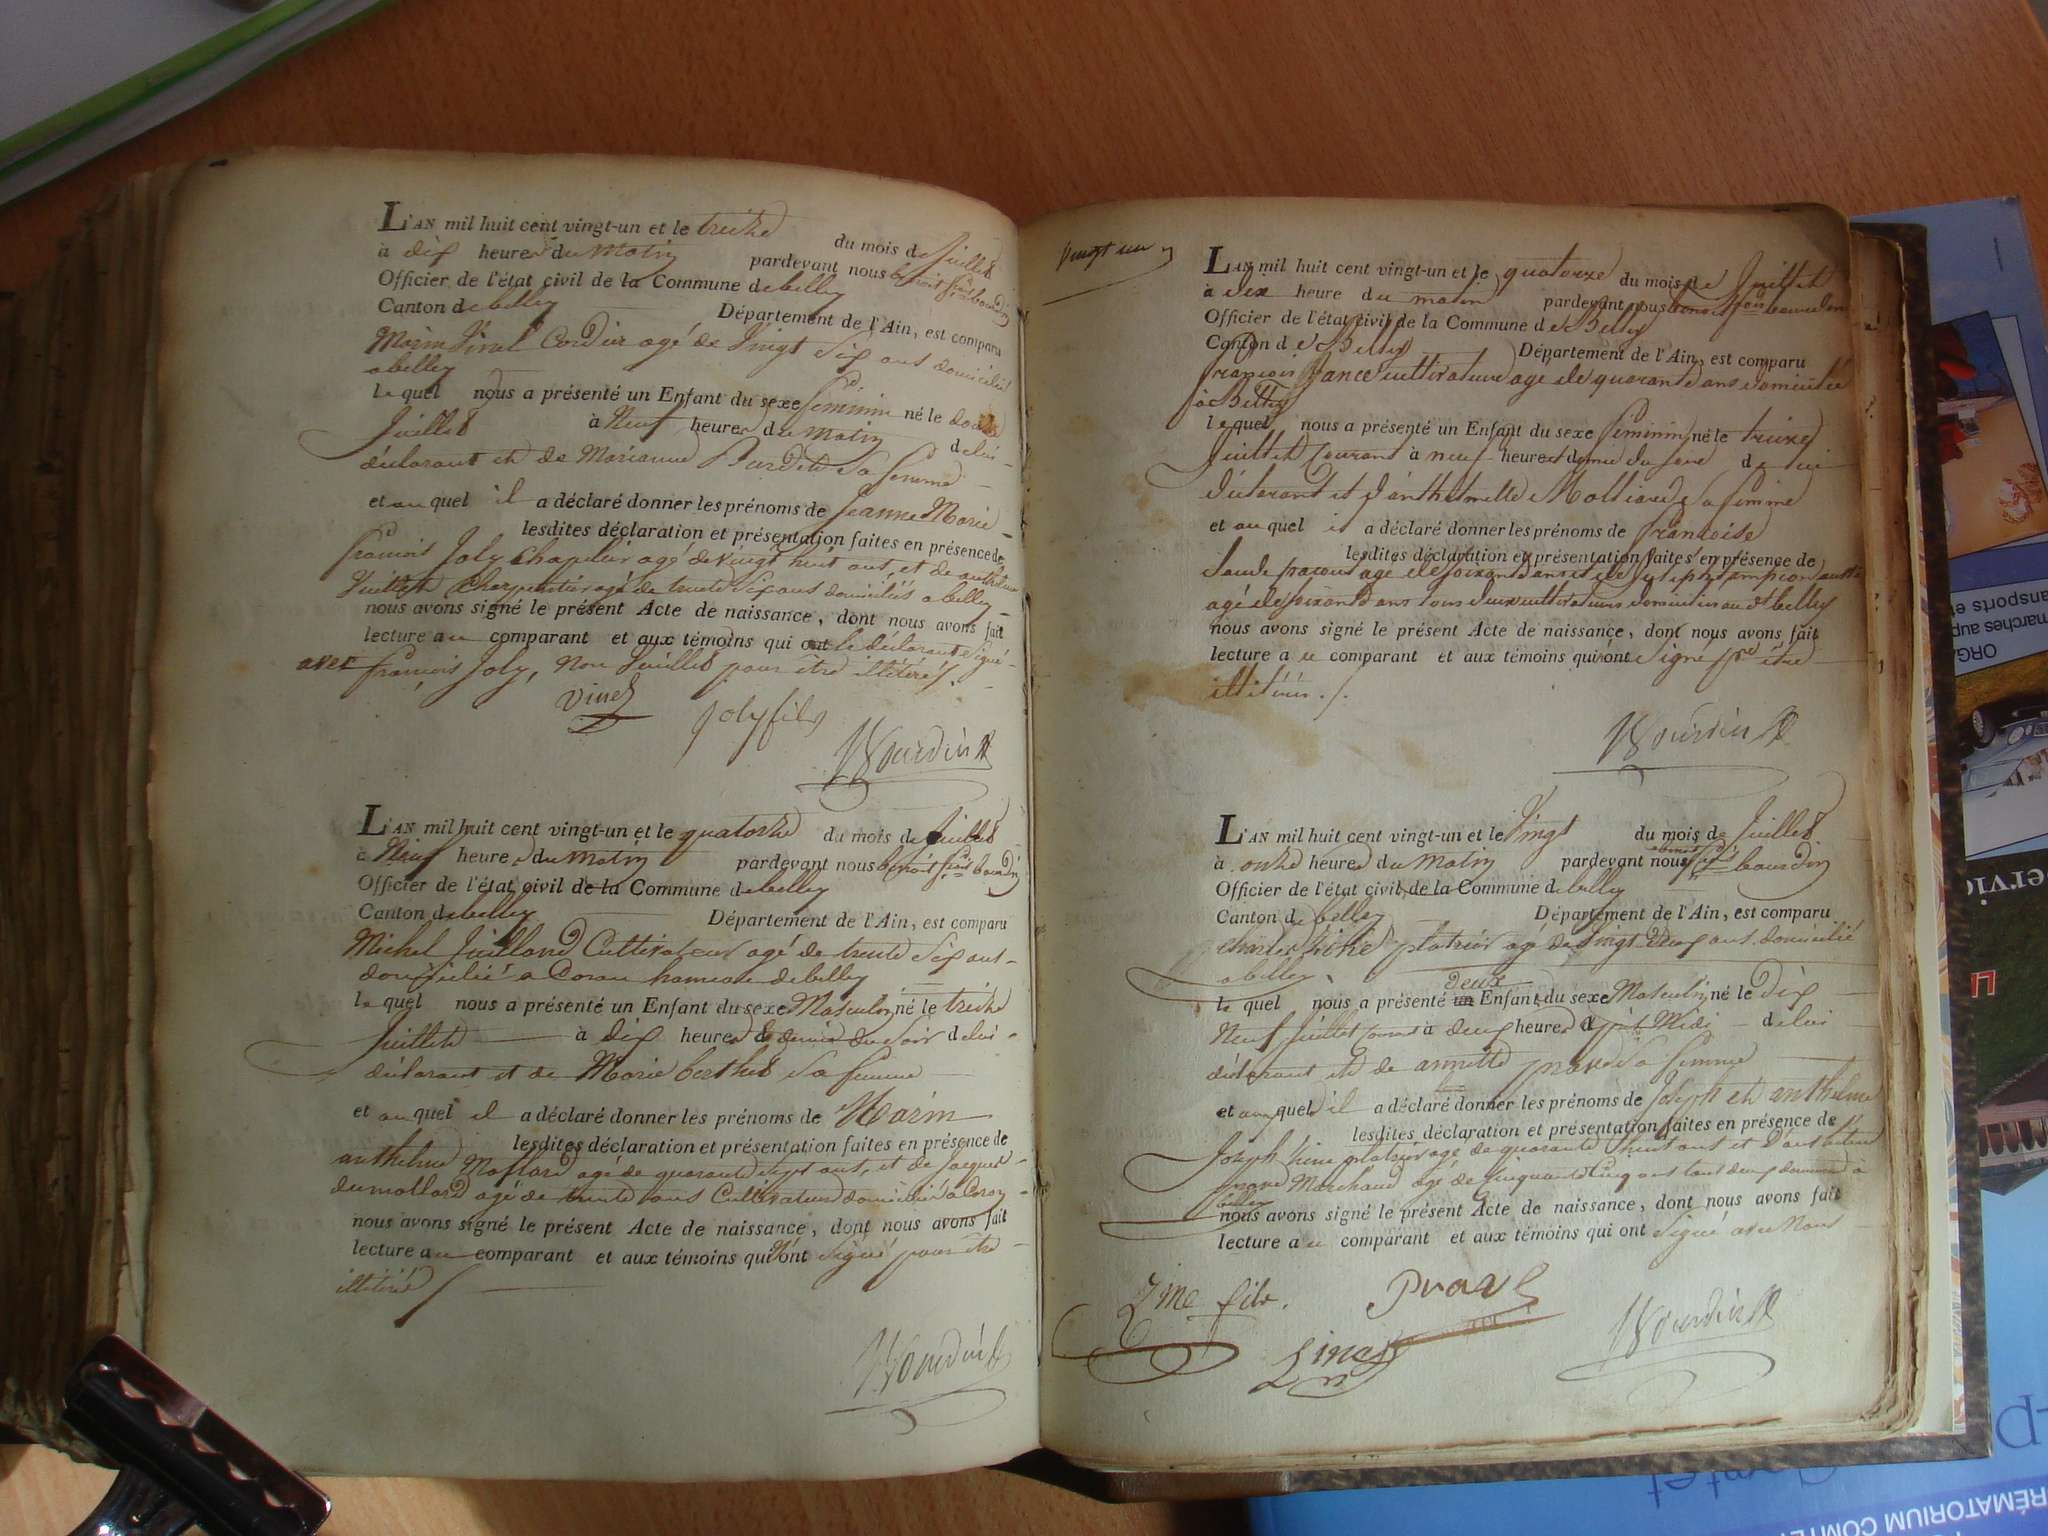 L'AN mil huit cent vingt-un et le treize du mois de Juillet
à dix heures du Matin pardevant nous benoit bourdin
Officier de l'état civil de la Commune de belley
Canton de belley Département de l'Ain, est comparu
Marin Vinet Cordier agé de Vingt Six ans domicilié
a belley
le quel nous a présenté un Enfant du sexe feminin né le douze
Juillet à Neuf heures du Matin de lui
déclarant et de Marianne Sa femme
et au quel il a déclaré donner les prénoms de Jeanne Marie
lesdites déclaration et présentation faites en présence de
francois Joly Chapelier agé de vingt huit ans, et de anthelme
Juillet Charpentier agé de trente Six ans domiciliés a belley
nous avons signé le présent Acte de naissance, dont nous avons fait
lecture au comparant et aux témoins qui ont le déclarant signé
avec francois Joly, Non Juillet pour être illitéré
Vinet Joly fils
Bourdin
L'AN mil huit cent vingt-un et le quatorze du mois de Juillet
à Neuf heures du Matin pardevant nous benoit bourdin
Officier de l'état civil de la Commune de belley
Canton de belley Département de l'Ain, est comparu
Michel Juilland Cultivateur agé de trente Six ans
domicilié a Coron hameau de belley
le quel nous a présenté un Enfant du sexe Masculin né le treize
Juillet à dix heures & demie du Soir de lui
déclarant et de Marie berthet Sa femme
et au quel il a déclaré donner les prénoms de Marin
lesdites déclaration et présentation faites en présence de
anthelme Mollard agé de quarante Sept ans, et de Jacques
dumollard agé de trente ans Cultivateurs domiciliés a Coron
nous avons signé le présent Acte de naissance, dont nous avons fait
lecture au comparant et aux témoins qui n'ont Signé pour être
illitéré
Bourdin
Vingt un
L'AN mil huit cent vingt-un et le quatorze du mois de Juillet
à dix heure du matin pardevant nous benoit bourdin
Officier de l'état civil de la Commune de Belley
Canton de Belley Département de l'Ain, est comparu
francois cultivateur age de quarante ans domicilié
à Belley
le quel nous a présenté un Enfant du sexe feminin né le treize
Juillet courant à neuf heures demie du soir de lui
déclarant et d'anthelmette Molliard sa femme
et au quel il a déclaré donner les prénoms de francoise
lesdites déclaration et présentation faites en présence de
agé de soixante ans tous deux cultivateurs domiciliés au dt belley
nous avons signé le présent Acte de naissance, dont nous avons fait
lecture au comparant et aux témoins qui n'ont signé pr être
illitérés
Bourdin
L'AN mil huit cent vingt-un et le Vingt du mois de Juillet
à onze heures du Matin pardevant nous benoit bourdin
Officier de l'état civil de la Commune de belley
Canton de belley Département de l'Ain, est comparu
Charles platrier agé de Vingt neuf ans domicilié
a belley
deux
le quel nous a présenté un Enfant du sexe Masculin né le dix
Neuf Juillet à deux heures Midi de lui
déclarant et de annette prave Sa femme
et aux quel il a déclaré donner les prénoms de Joseph et anthelme
lesdites déclaration et présentation faites en présence de
Joseph platrier agé de quarante huit ans et d'anthelme
prave Marchand agé de Cinquante Cinq ans tous deux domiciliés à
belley
nous avons signé le présent Acte de naissance, dont nous avons fait
lecture au comparant et aux témoins qui ont Signé avec Nous
fils. Prave
Bourdin